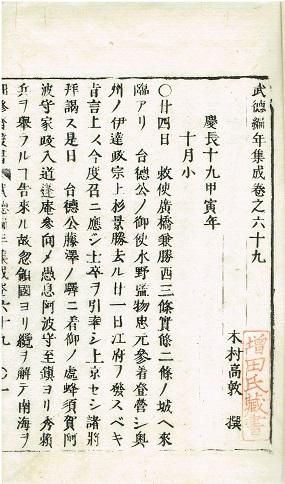 武德編年集成卷之六十九
木村高敦 撰
增田氏藏書
慶長十九甲寅年
十月小
〇廿四日 敕使廣橋兼勝西三條實條二條ノ城ヘ來
臨アリ 台德公ノ御使水野監物忠元參着登營シ奥
州ノ伊達政宗上杉景勝去ル廿一日江府ヲ發スベキ
旨言上ス今度召ニ應シ士卒ヲ引率シ上京セシ諸將
拜謁ス是日 台德公藤澤ノ驛ニ着御ノ處蜂須賀阿
波守家政入道蓬庵參向メ愚息阿波守至鎮ヨリ秀頼
兵ヲ舉ルヿ告來ル故忽領國ヨリ纜ヲ解テ南海ヲ